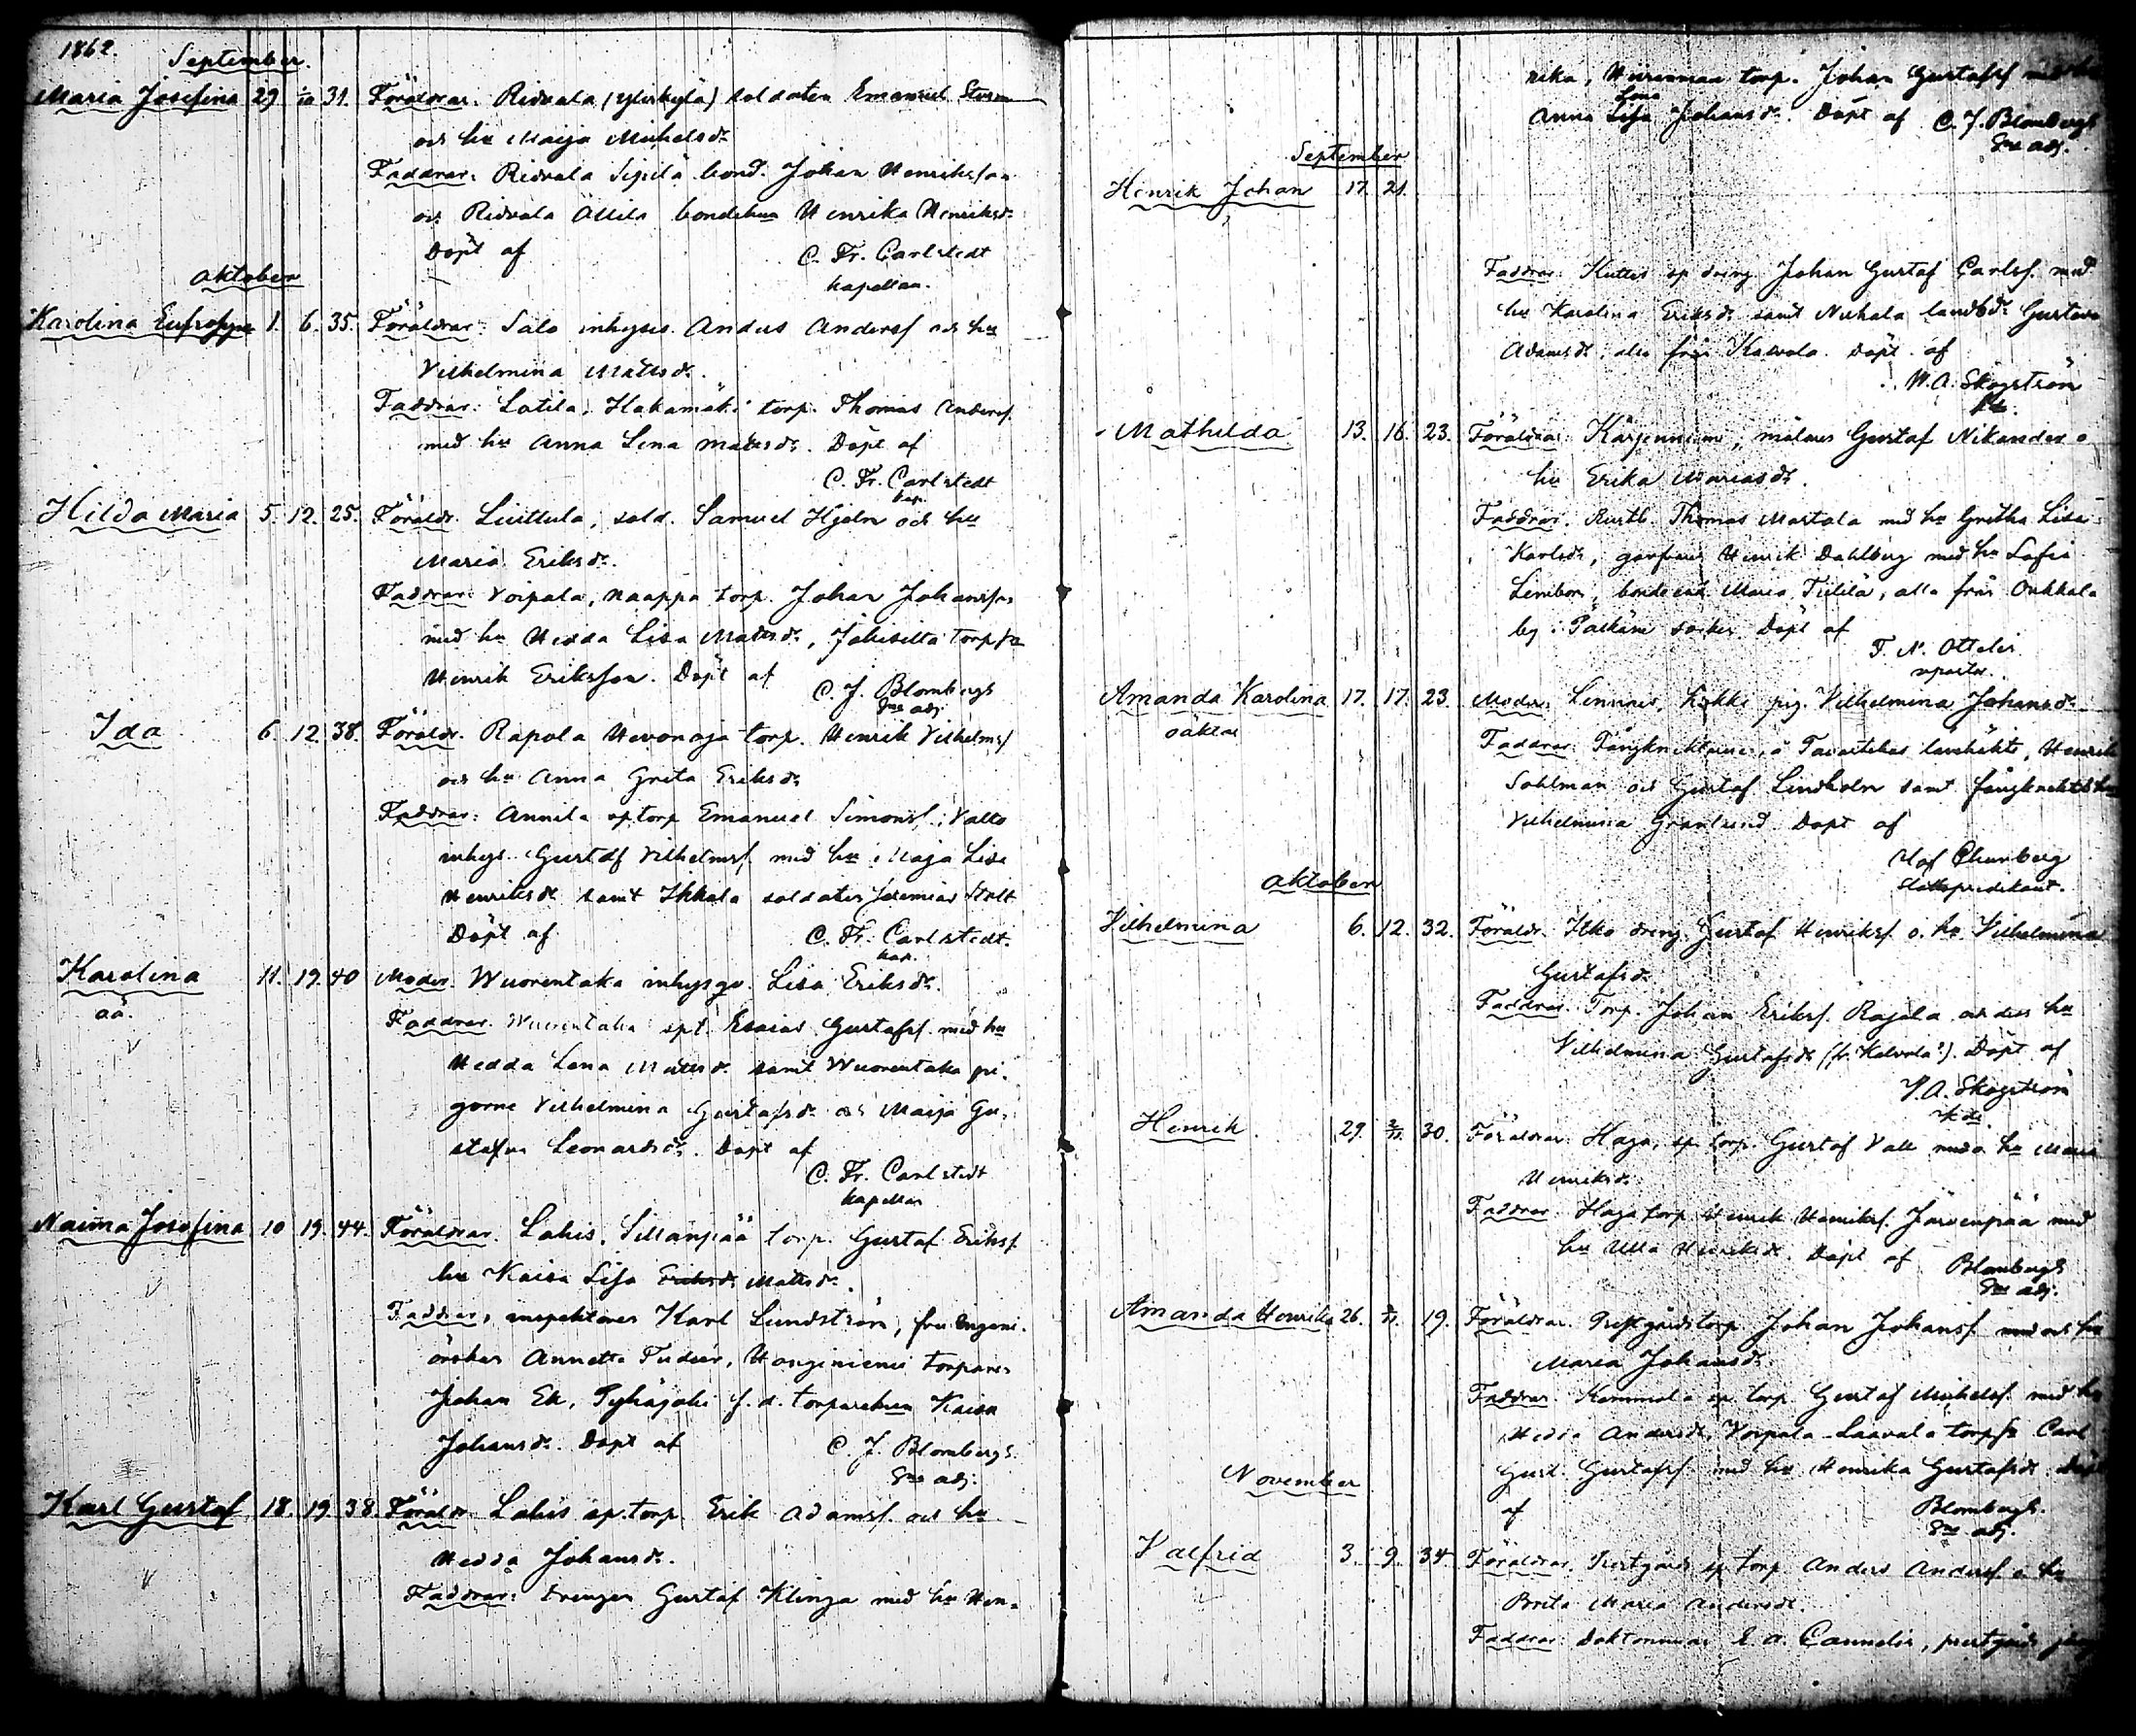 1862.
September.
Maria Josefina 29 1/10 31. Föräldrar. Ridvala (Yliskylä) soldaten Emanuel Storm
och hu Maija Michelsdr
Faddrar. Ridvala Sipilä bond. Johan Henriksson
och Ridvala Ollila bondehun Henrika Henriksdr
Döpt af C. Fr. Carlstedt
kapellan.
Oktober
Karolina Eufrosyne 1. 6. 35. Föräldrar. Salo inhyses Anders Andersf och hu
Vilhelmina Matsdr.
Faddrar. Lotila, Hakamäki torp. Thomas Andersf.
med hu Anna Lena Matsdr. Döpt af
C. Fr. Carlstedt
kap.
Hilda Maria 5. 12. 25. Föräldr. Liuttula, sold. Samuel Hjelm och hu
Maria Eriksdr.
Faddrar. Voipala, Naappa torp. Johan Johansson
med hu Hedda Lisa Matsdr,
Henrik Eriksson. Döpt af C. J. Blombergh
adj.
Ida 6. 12. 38. Föräldr. Rapola Hevonoja torp. Henrik Vilhelmsf
och hu Anna Greta Eriksdr
Faddrar: Annila sptorp Emanuel Simonsf, Vallo
inhys. Gustaf Vilhelmsf. med hu Maja Lisa
Henriksdr samt Ikkala soldaten Jeremias Stolt
Döpt af C. Fr. Carlstedt.
kap.
Karolina 11. 19. 40 Moder. Wuorentaka inhysqv. Lisa Eriksdr.
oä.
Faddrar. Wuorentaka spt. Esaias Gustafsf. med hu
Hedda Lena Matsdr samt Wuorentaka pi-
gorne Vilhelmina Gustafsdr och Maija Gu-
stafva Leonardsdr. Döpt af
C. Fr. Carlstedt
kapellan
Naima Josefina 10 19. 44. Föräldrar. Lahis, Sillanpää torp. Gustaf Eriksf.
hu Kaisa Lisa Eriksdr Matsdr.
Faddrar, inspektoren Karl Lundström, fru Ingeni-
örskan Annette Tudeer, torparen
Johan Ek, Pyhäjoki f. d. torparehun Kaisa
Johansdr. Döpt af C. J. Blombergh
adj.
Karl Gustaf 18. 19. 38. Föräldr. Lahis sp.torp. Erik Adamsf. och hu
Hedda Johansdr.
Faddrar: Drengen Gustaf Klinga med hu Hen-
rika, torp. Johan Gustafsf med hu
Lena
Anna Lisa Johansdr. Döpt af C. J. Blombergh
adj.
September
Henrik Johan 17. 21.
Faddrar. sp dreng Johan Gustaf Carlsf. med
hu Karolina Eriksdr samt landbdr Gustava
Adamsdr, alla från Kalvola. Döpt af
Skogström
Mathilda 13. 16. 23. Föräldrar. Kärjenniemi, målaren Gustaf Nikander o
hu Erika
Faddrar. Rustb. Thomas Martala med hu Gretha Lisa
Karlsdr, garfvare Henrik Dahlberg med hu Sofia
Maria alla från Onkkala
by i Pälkäne socken. Döpt af
Amanda Karolina 17. 17. 23. Moder. Lennäis, pig. Vilhelmina Johansdr
oäkta
Faddrar. å Tavastehus länehäkte, Henrik
Sohlman och Gustaf Lindholm samt fångknektshu
Vilhelmina Granlund. Döpt af
Churberg
slottspredikant.
Oktober
Vilhelmina 6. 12. 32. Föräldr. dreng Gustaf Henriksf. o. hu Vilhelmina
Gustafsdr
Faddrar. Torp. Johan Eriksf. Rajala och dess hu
Vilhelmina Gustafsdr (fr. Kalvola?). Döpt af
Skogström
Henrik. 29. 2/11. 30. Föräldrar. Haga, sp. torp. Gustaf hu Maria
Henriksdr.
Faddrar. Haga torp Henrik Henriksf. Järvenpää med
hu Ulla Henriksdr. Döpt af Blombergh
adj.
Amanda Henrika 26. 2/11. 19. Föräldrar. Prestgårdstorp. Johan Johansf. och hu
Maria Johansdr.
Faddrar. sp torp Gustaf Michelsf. med hu
Hedda Andersdr, Voipala Laavala torpf. Carl
Gust. Gustafsf. med hu Henrika Gustafsdr. Döpt
af Blombergh.
adj.
November
Valfrid 3. 9. 34. Föräldrar. Prestgårds sp torp Anders Andersf. o hu
Brita Maria Andersdr.
Faddrar: Doktorinnan